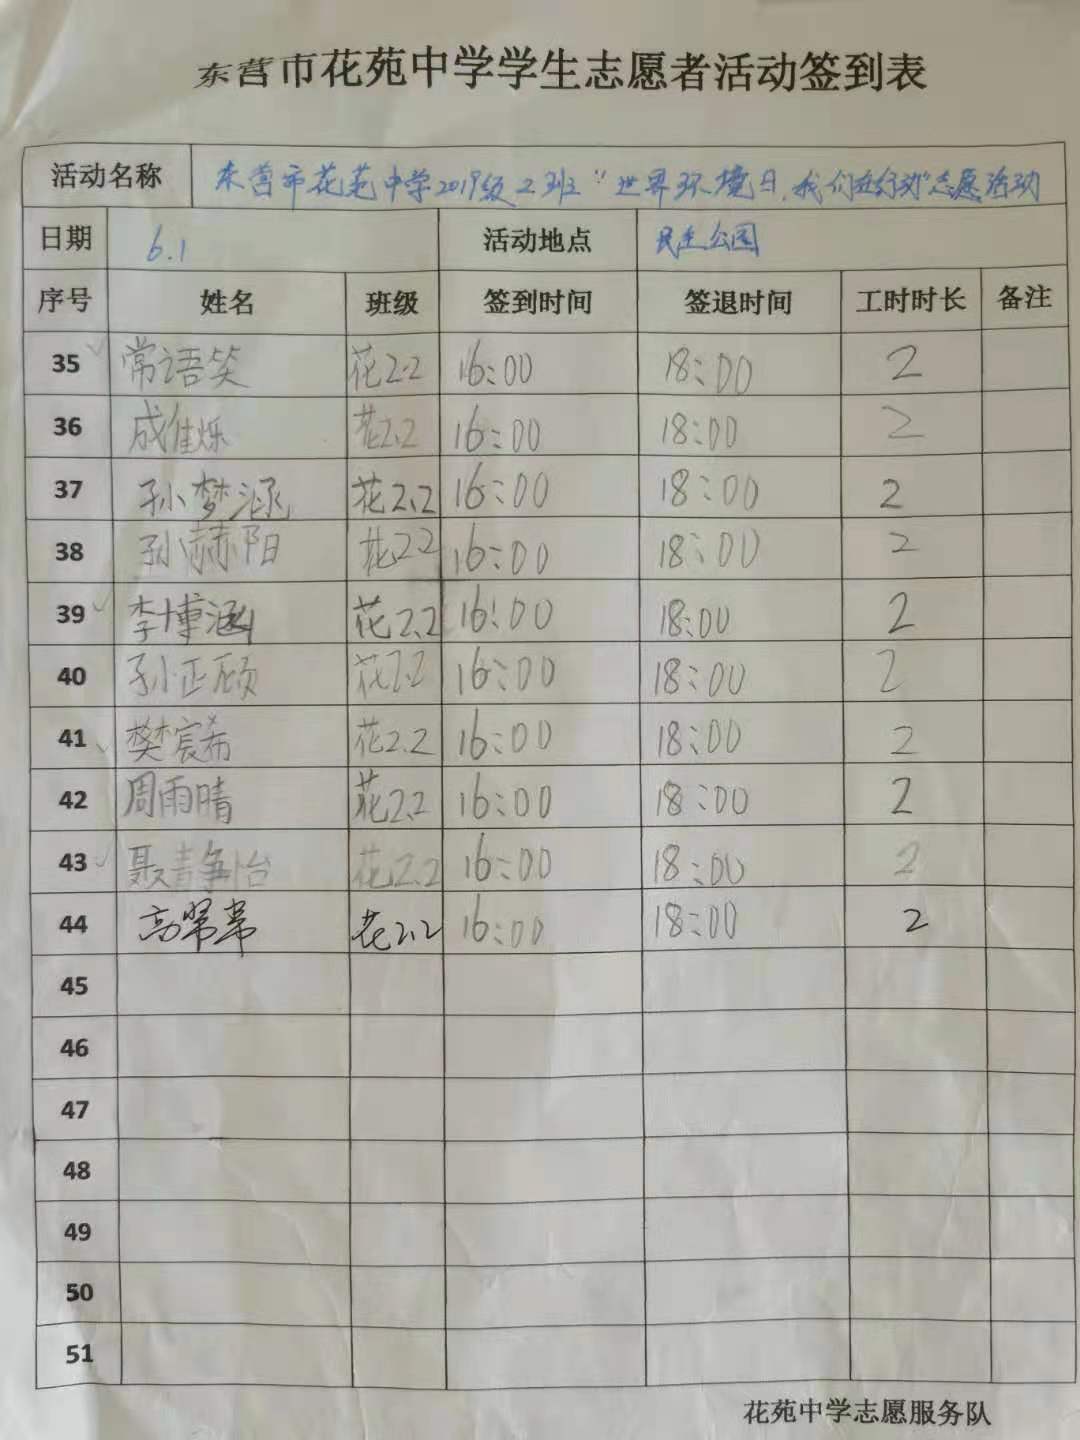 东营市花苑中学学生志愿者活动签到表
活动名称 东营市花苑中学2019级2班"世界环境日,我们在行动"志愿活动
日期 6.1 活动地点 民生公园
序号 姓名 班级 签到时间 签退时间 工时时长 备注
35 常语笑 花2.2 16:00 18:00 2
36 成佳烁 花2.2 16:00 18:00 2
37 孙梦涵 花2.2 16:00 18:00 2
38 孙赫阳 花2.2 16:00 18:00 2
39 李博涵 花2.2 16:00 18:00 2
40 孙正颀 花2.2 16:00 18:00 2
41 樊宸希 花2.2 16:00 18:00 2
42 周雨晴 花2.2 16:00 18:00 2
43 聂静怡 花2.2 16:00 18:00 2
44 高 花2.2 16:00 18:00 2
45
46
47
48
49
50
51
花苑中学志愿服务队